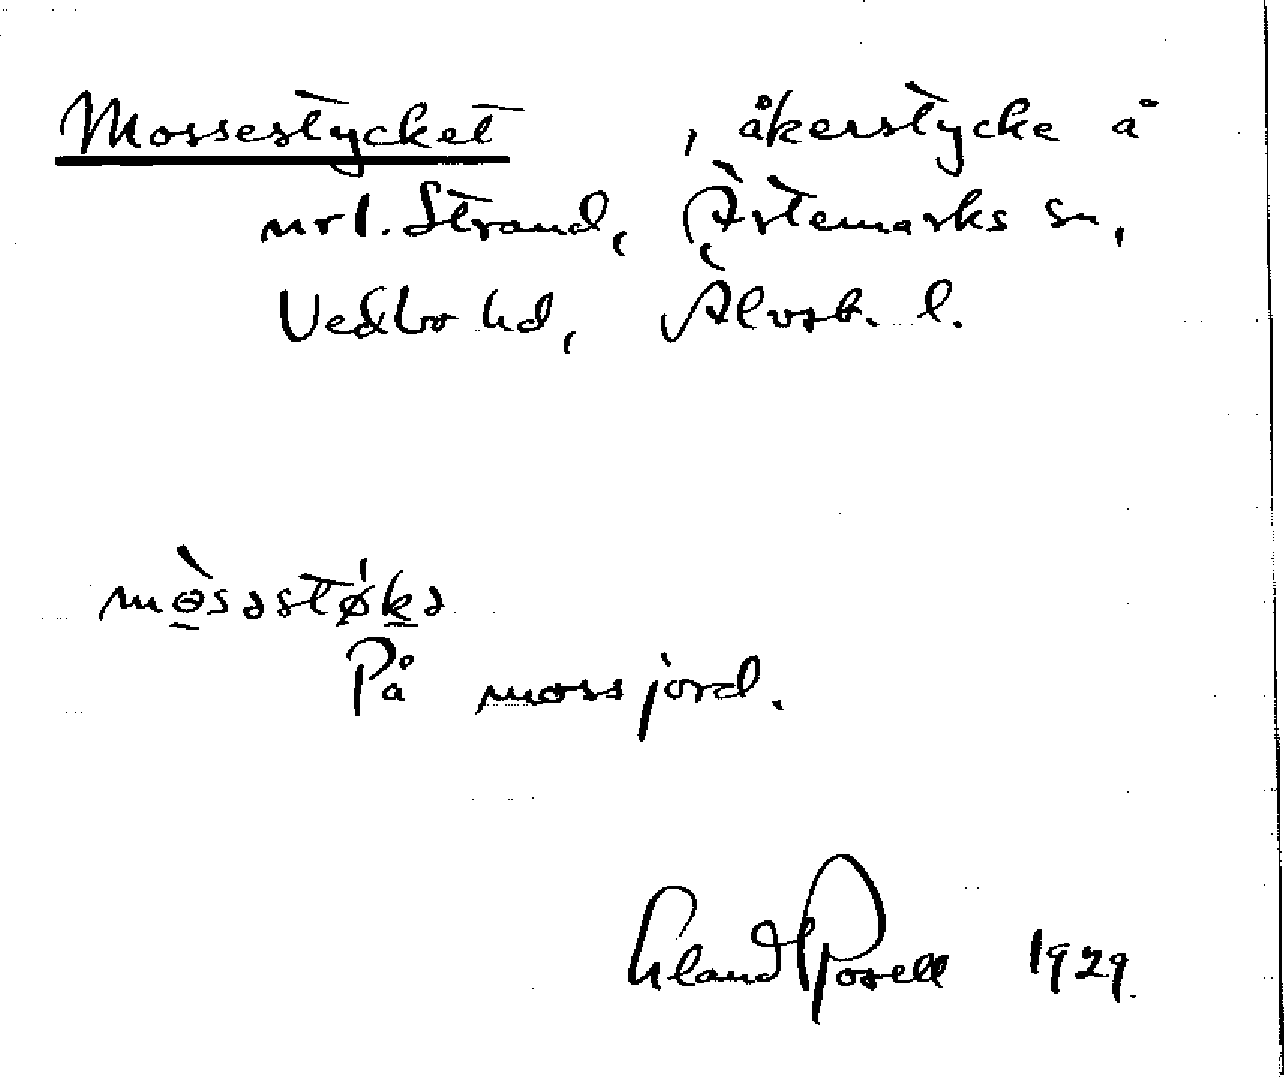 Mossestycket, åkerstycke å
nr 1. Strand, Ärtemarks sn,
Vedbo hd, Älvsb. l.
mɵ̀səstø̍kə
På mossjord.
Erland Rosell 1929.